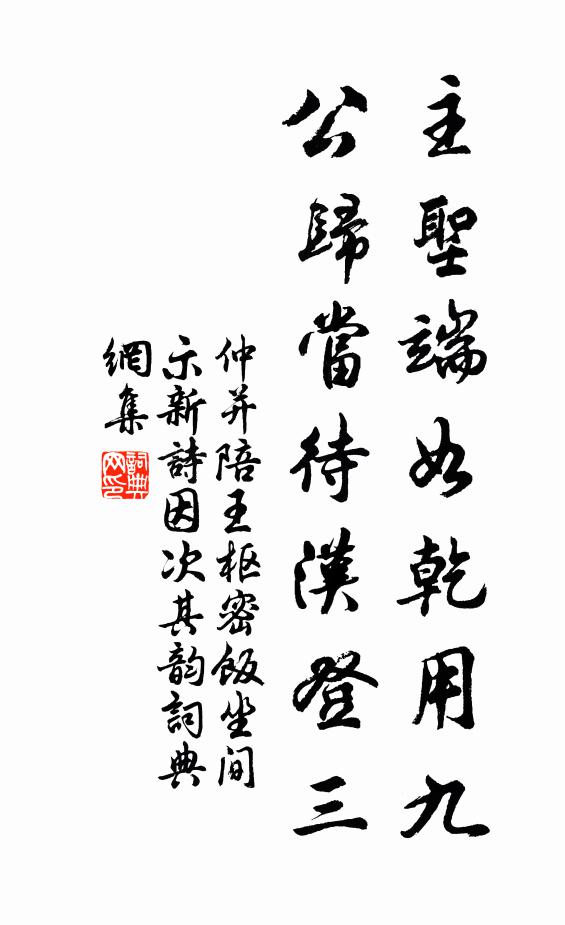 主聖端如乾用九
公歸當待漢登三
仲并陪王枢密飯坐间
示新詩因次其韵詞典
網集
詞典網印